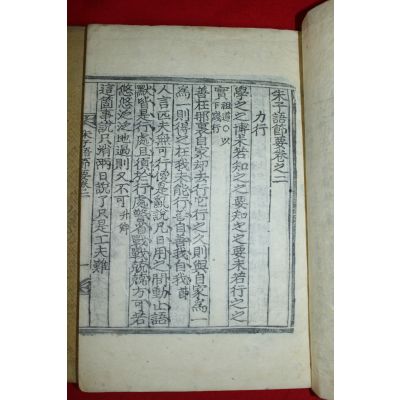 朱子語節要卷之二
力行
學之之博未若知之之要知之之要未若行之之
實 祖道○以下踐行
善在那裏自家却去行它行之久則與自家爲一
爲一則得之在我未能行善自善我自我 節
人言匹夫無可行便是亂說凡日用之間動止語
默皆是行處且須於行處警省戰戰兢兢方可若
悠悠泛泛地過則又不可 升卿
這箇事說只消兩日說了只是工夫難
朱子語節要卷二